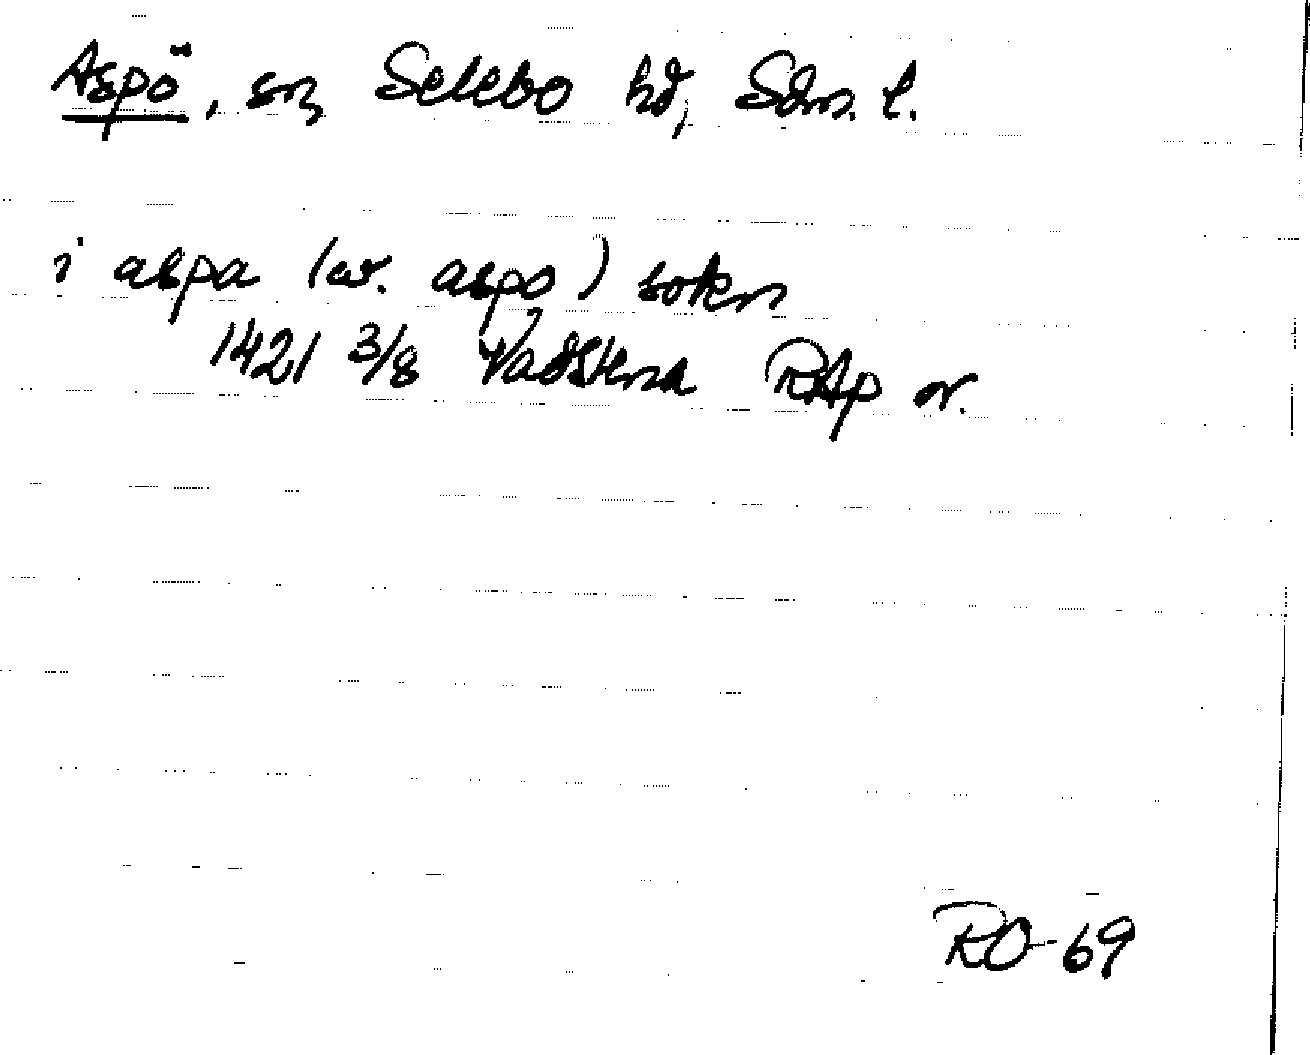 Aspö, sn, Selebo hd, Sdm. l.
i aspa (av. aspo) sokn
1421 3/8 Vadstena RAp or.
RO-69